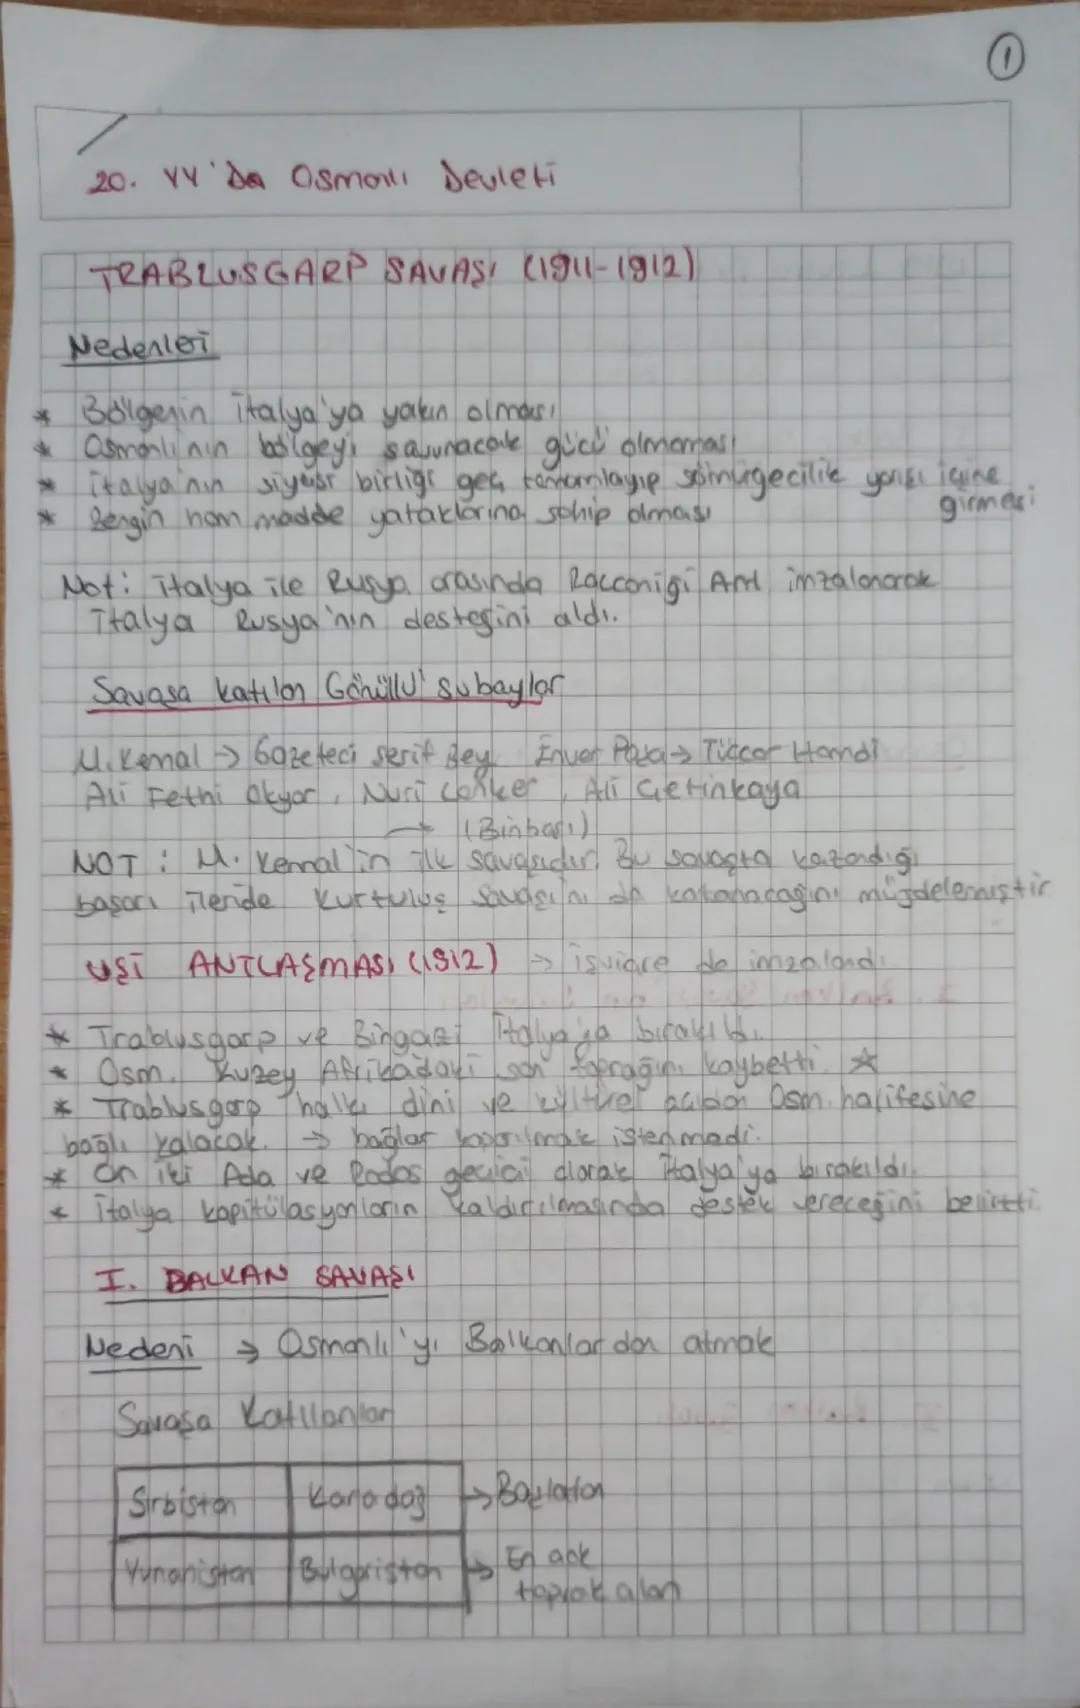 1
20. YY'da Osmanlı Devleti
TRABLUSGARP SAVAŞI (1911-1912)
Nedenleri
* Bölgenin İtalya'ya yakın olması
* Osmanlı'nın bölgeyi savunacak gücü olmaması
* İtalya'nın siyasi birliği geç tamamlayıp sömürgecilik yarışı içine
girmesi
* Zengin ham madde yataklarına sahip olması
Not: İtalya ile Rusya arasında Racconigi Ant imzalanarak
İtalya Rusya'nın desteğini aldı.
Savaşa katılan Gönüllü subaylar
M. Kemal → Gazeteci Şerif Bey Enver Paşa → Tüccar Hamdi
Ali Fethi Okyar, Nuri Conker, Ali Çetinkaya
→ (Binbaşı)
NOT: M. Kemal'in ilk savaşıdır. Bu savaşta kazandığı
başarı ileride Kurtuluş Savaşı'nı da kazanacağını müjdelemiştir
UŞİ ANTLAŞMASI (1912) → İsviçre'de imzalandı
* Trablusgarp ve Bingazi İtalya'ya bırakıldı.
* Osm. Kuzey Afrikadaki son toprağını kaybetti ☆
* Trablusgarp halkı dini ve kültürel açıdan Osm. halifesine
bağlı kalacak. → bağlar koparılmak istenmedi.
* On iki Ada ve Rodos geçici olarak İtalya'ya bırakıldı.
* İtalya kapitülasyonların kaldırılmasında destek vereceğini belirtti.
I. BALKAN SAVAŞI
Nedeni → Osmanlı'yı Balkanlardan atmak
Savaşa Katılanlar
Sırbistan Karadağ → Başlatan
Yunanistan Bulgaristan → En çok
toprak alan